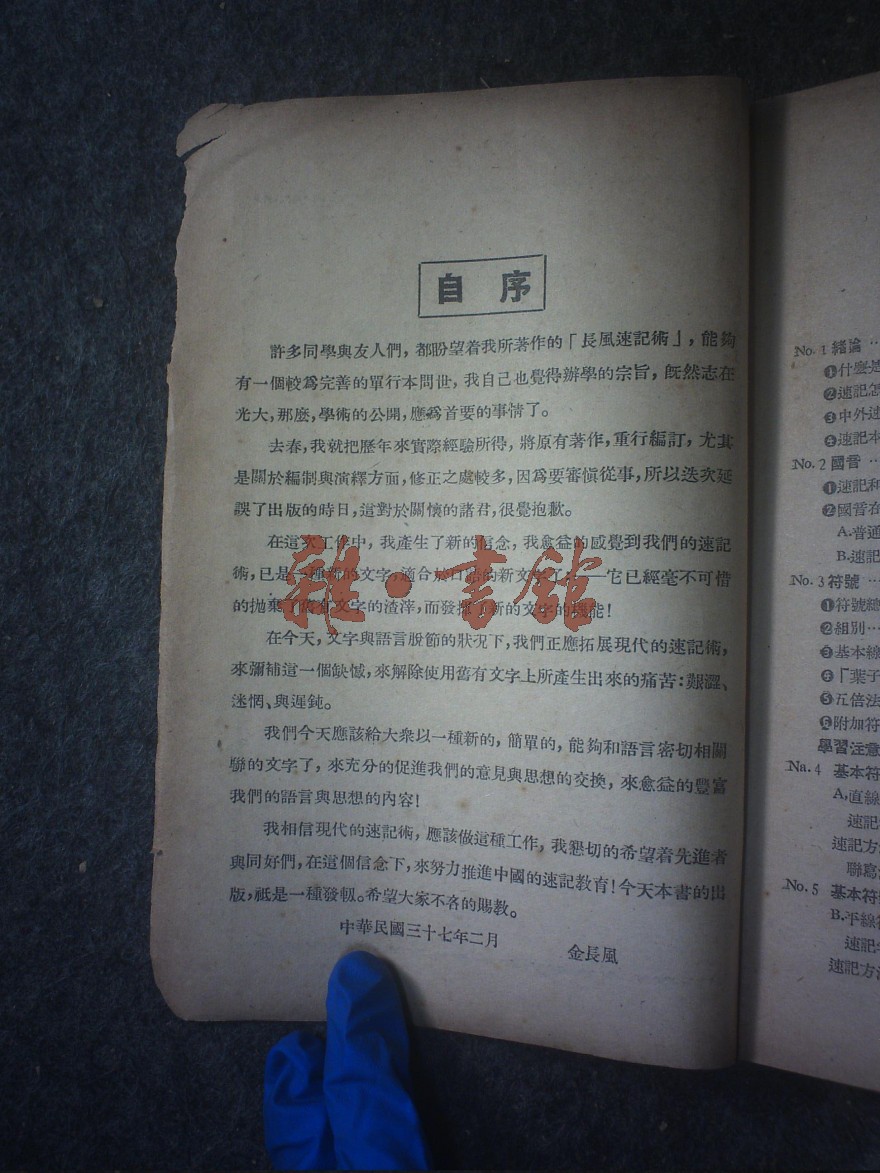 自序
許多同學與友人們，都盼望着我所著作的「長風速記術」，能夠
有一個較爲完善的單行本問世，我自己也覺得辦學的宗旨，既然志在
光大，那麼，學術的公開，應爲首要的事情了。
去春，我就把歷年來實際經驗所得，將原有著作，重行編訂，尤其
是關於編制與演繹方面，修正之處較多，因爲要審愼從事，所以迭次延
誤了出版的時日，這對於關懷的諸君，很覺抱歉。
在這次工作中，我產生了新的信念，我愈益的感覺到我們的速記
術，已是一種新的文字，適合於口語的新文字了！——它已經毫不可惜
的拋棄了舊有文字的渣滓，而發揮了新的文字的機能！
在今天，文字與語言脫節的狀況下，我們正應拓展現代的速記術，
來彌補這一個缺憾，來解除使用舊有文字上所產生出來的痛苦：艱澀、
迷惘、與遲鈍。
我們今天應該給大衆以一種新的，簡單的，能夠和語言密切相關
聯的文字了，來充分的促進我們的意見與思想的交換，來愈益的豐富
我們的語言與思想的內容！
我相信現代的速記術，應該做這種工作，我懇切的希望着先進者
與同好們，在這個信念下，來努力推進中國的速記教育！今天本書的出
版，祇是一種發軔。希望大家不吝的賜教。
中華民國三十七年二月
金長風
雜·書館
No. 1 緒論…
❶什麼是
❷速記怎
❸中外速
❹速記本
No. 2 國音…
❶速記和
❷國音在
A.普通
B.速記
No. 3 符號…
❶符號總
❷組別…
❸基本線
❹「葉子
❺五倍法
❻附加符
學習注意
Na. 4 基本符
A.直線
速記
速記方
聯寫
No. 5 基本符號
B.平線符
速記
速記方法